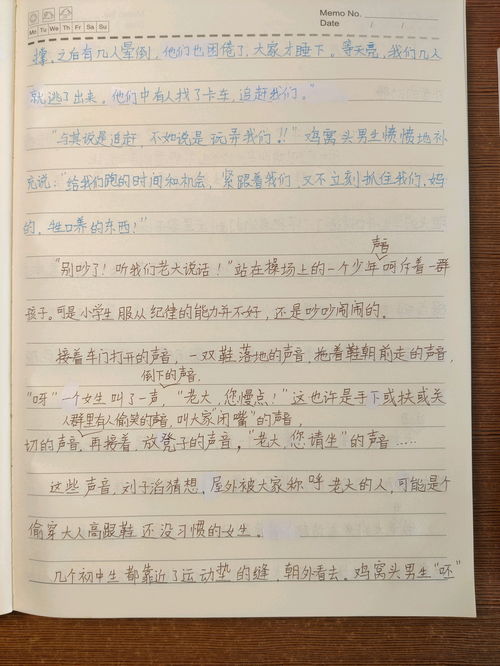 Memo No.
Mo Tu We Th Fr Sa Su
Date / /
撞,之后有几人晕倒,他们也困倦了,大家才睡下。等天亮,我们几人
就逃了出来。他们中有人找了卡车,追赶我们。”
“与其说是追赶,不如说是玩弄我们!!”鸡窝头男生愤愤地补
充说:“给我们跑的时间和机会,紧跟着我们,又不立刻抓住我们,妈
的,牲口养的东西!”
声音
“别吵了!听我们老大说话!”站在操场上的一个少年呵斥着一群
孩子。可是小学生服从纪律的能力并不好,还是吵吵闹闹的。
接着车门打开的声音,一双鞋落地的声音,拖着鞋朝前走的声音,
倒下的声音,
“呀”一个女生叫了一声,“老大,您慢点!”这也许是手下或扶或关
人群里有人偷笑的声音,叫大家“闭嘴”的声音,
切的声音,再接着,放凳子的声音,“老大,您请坐”的声音……
这些声音,刘子滔猜想,屋外被大家称呼老大的人,可能是个
偷穿大人高跟鞋还没习惯的女生。
几个初中生都靠近了运动垫的缝,朝外看去。鸡窝头男生“呸”